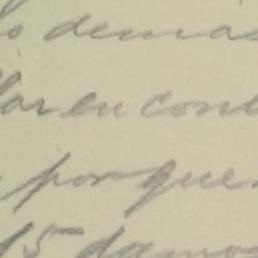 los demas
lar en cont
, porque
15 damos